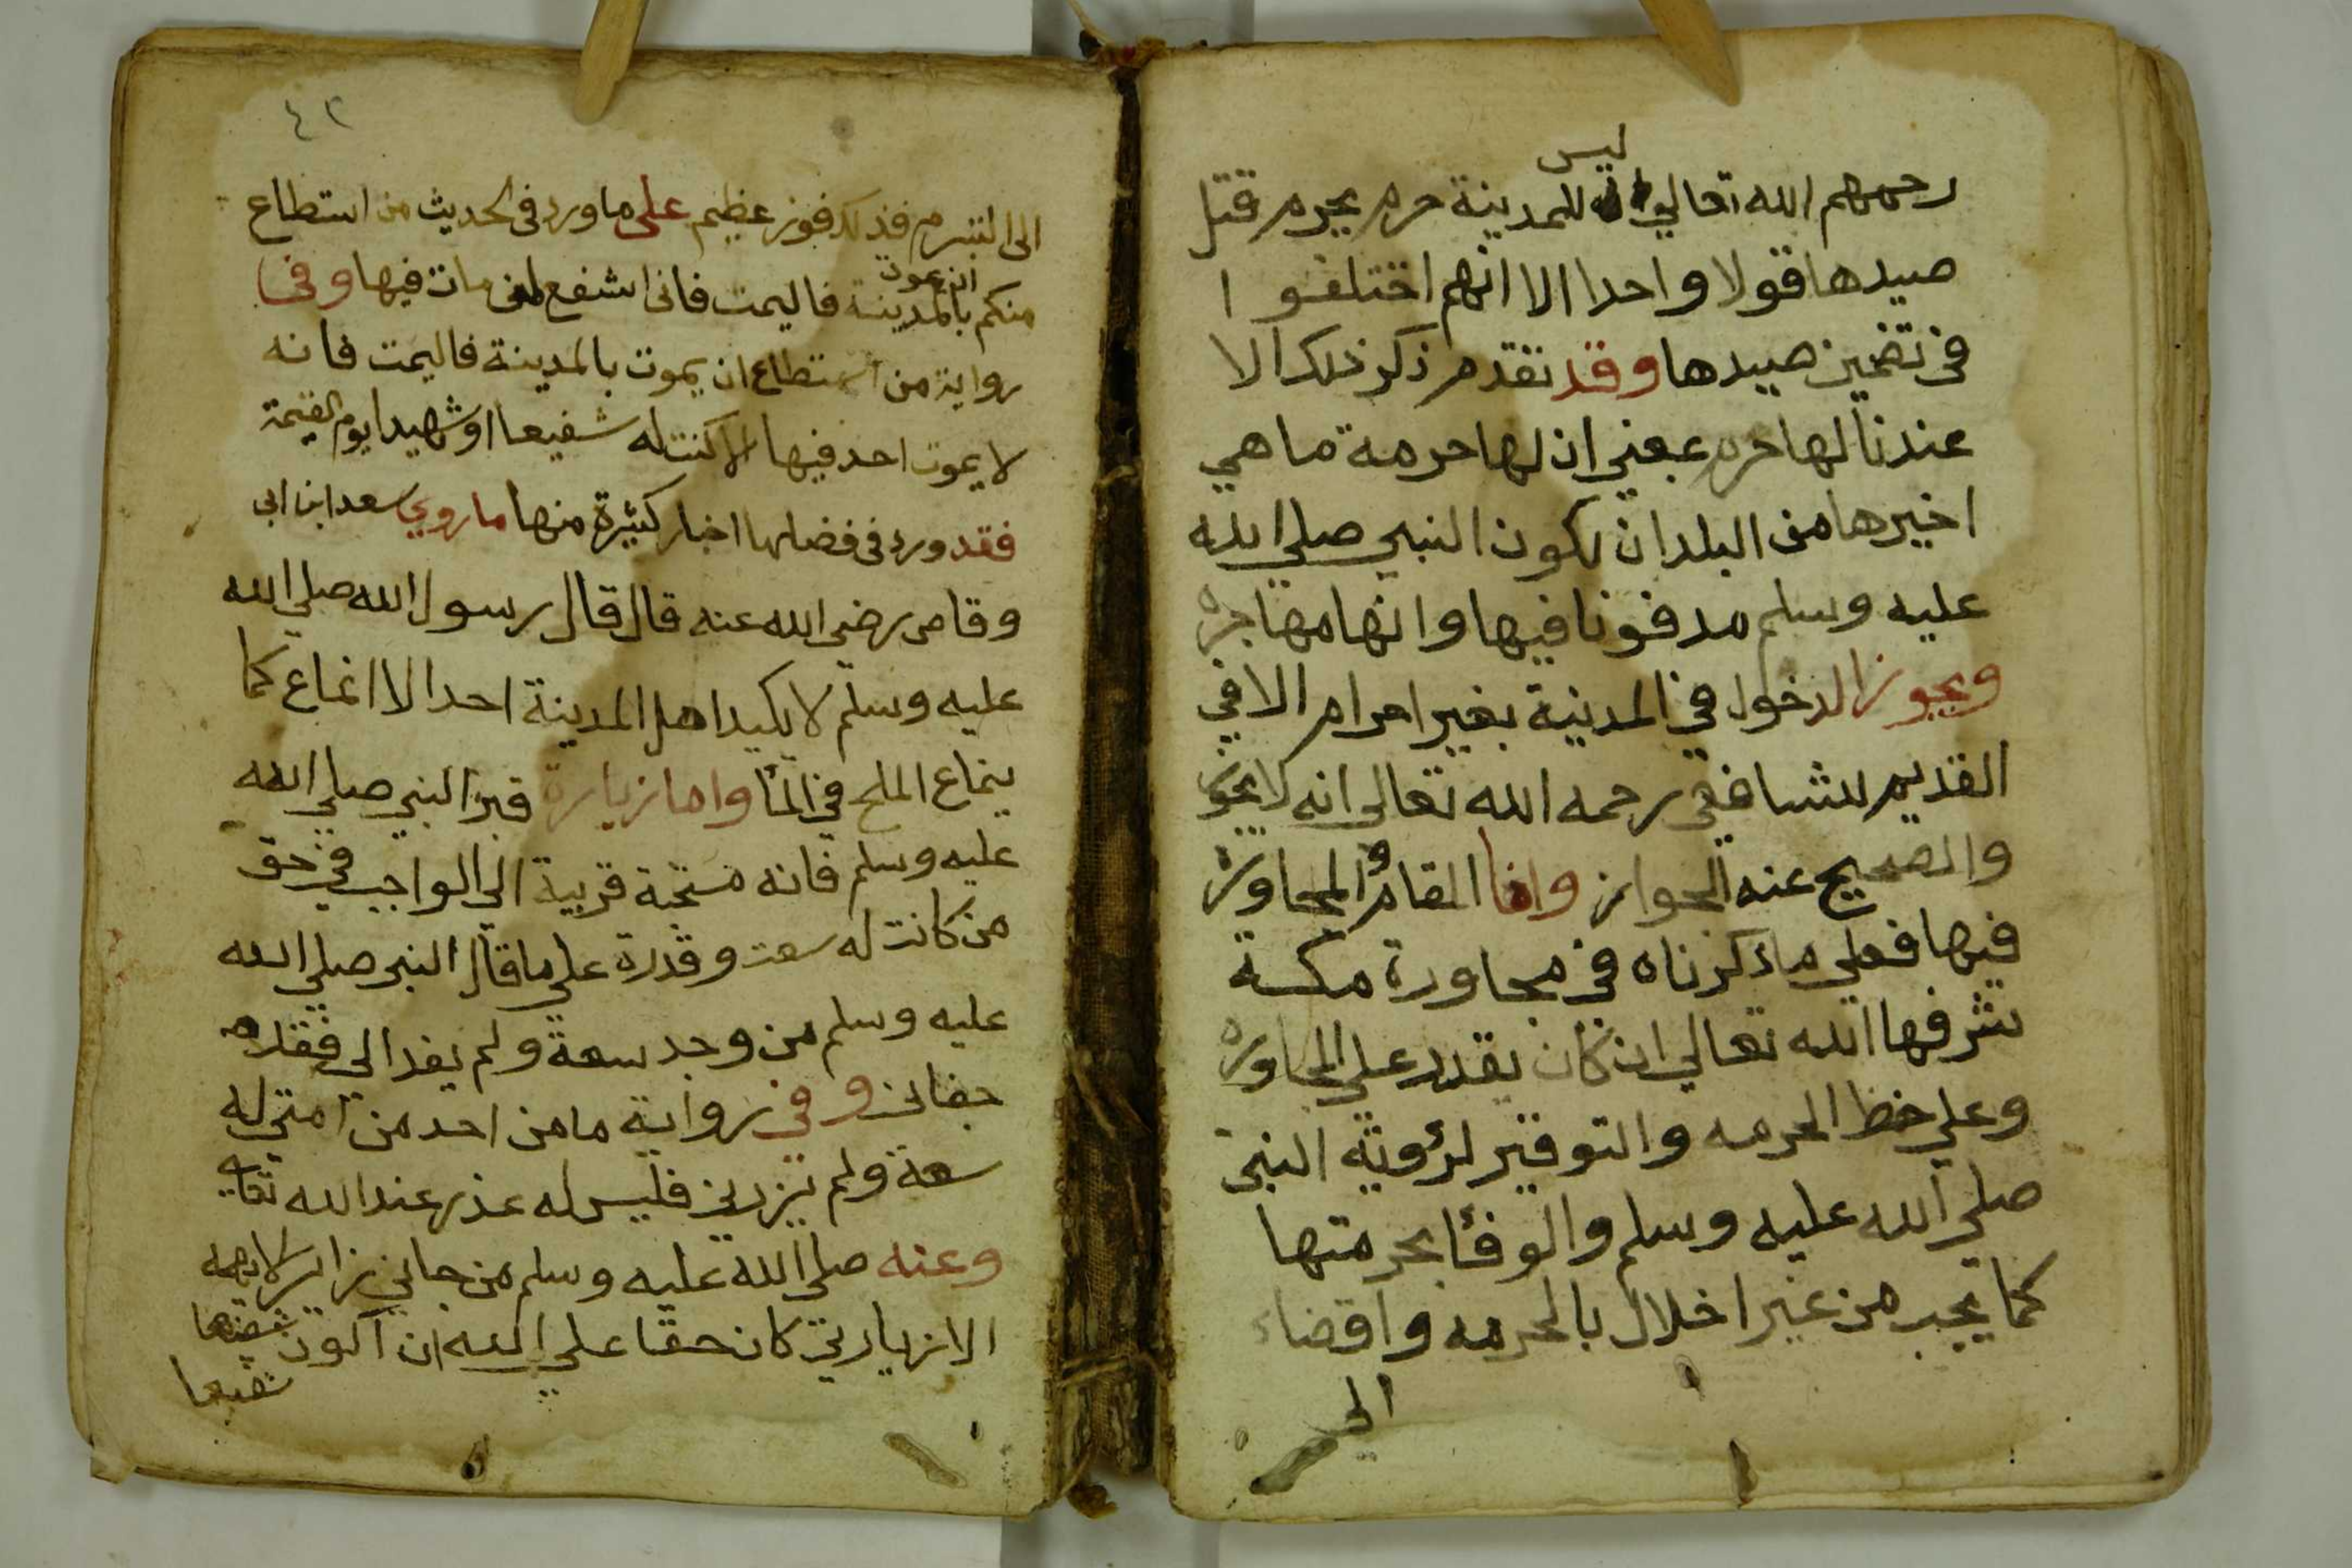 ليس
رحمهم الله تعالي للمدينة حرم يحرم قتل
صيدها قولا واحدا الا انهم اختلفوا
في تضمين صيدها وقد تقدم ذكر ذلك الا
عندنا لها حرم بمعني ان لها حرمة ما هي
اخيرها من البلدان لكون النبي صلي الله
عليه وسلم مدفونا فيها وانها مهاجره
ويجوز الدخول في المدينة بغير احرام الا في
القديم للشافعي رحمه الله تعالى انه لا يجوز
والصحيح عنه الجواز واما المقام والمجاورة
فيها فعلي ما ذكرناه في مجاورة مكة
شرفها الله تعالي ان كان يقدر علي المجاوره
وعلي حفظ الحرمه والتوقير لرؤية النبي
صلي الله عليه وسلم والوفا بحرمتها
كما يجب من غير اخلال بالحرمه وافضاء
الي
٤٢
الى التبرم فذلك فوز عظيم على ما ورد في الحديث من استطاع
ان يموت
منكم بالمدينة فاليمت فاني اشفع لمن مات فيها وفي
رواية من استطاع ان يموت بالمدينة فاليمت فانه
لا يموت احد فيها الا كنت له شفيعا او شهيدا يوم القيمة
فقد ورد في فضلها اخبار كثيرة منها ما روي سعد ابن ابي
وقاص رضي الله عنه قال قال رسول الله صلي الله
عليه وسلم لا يكيد اهل المدينة احد الا انماع كما
ينماع الملح في الما واما زيارة قبر النبي صلي الله
عليه وسلم فانه مستحبة قريبة الي الواجب في حق
من كانت له سعت وقدرة علي ما قال النبي صلي الله
عليه وسلم من وجد سعة ولم يفد الي فقد
جفاني وفي رواية ما من احد من امتي له
سعة ولم يزرني فليس له عذر عند الله تعالي
وعنه صلي الله عليه وسلم من جاني زاير لا يهمه
الا زيارتي كان حقا علي الله ان اكون
شفيعا